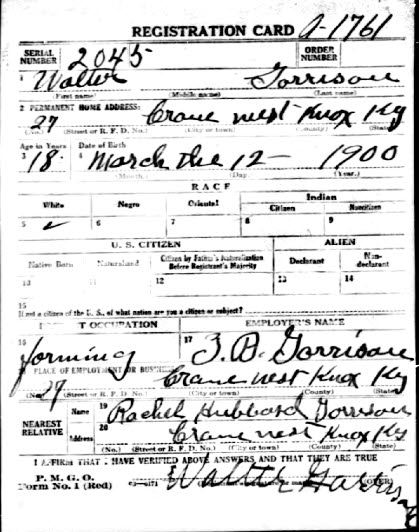 REGISTRATION CARD A-1761
SERIAL NUMBER 2045 ORDER NUMBER
1 Walter Gorrison
(First name) (Middle name) (Last name)
2 PERMANENT HOME ADDRESS:
27 Crane nest Knox Ky
(No.) (Street or R. F. D. No.) (City or town) (County) (State)
Age in Years Date of Birth
3 18 4 March the 12 - 1900
(Month.) (Day.) (Year.)
RACE
White Negro Oriental Indian
Citizen Noncitizen
5 ✓ 6 7 8 9
U. S. CITIZEN ALIEN
Native Born Naturalized Citizen by Father's Naturalization Before Registrant's Majority Declarant Non-declarant
10 11 12 13 14
15
If not a citizen of the U. S., of what nation are you a citizen or subject?
OCCUPATION EMPLOYER'S NAME
16 forming 17 Gorrison
PLACE OF EMPLOYMENT OR BUSINESS
27 Crane nest Knox Ky
(No.) (Street or R. F. D. No.) (City or town) (County) (State)
NEAREST RELATIVE Name 19 Rachel Hubbard Gorrison
Address 20 Crane nest Knox Ky
(No.) (Street or R. F. D. No.) (City or town) (County) (State)
I AFFIRM THAT I HAVE VERIFIED ABOVE ANSWERS AND THAT THEY ARE TRUE
P. M. G. O.
Form No. 1 (Red) Walter Garrison